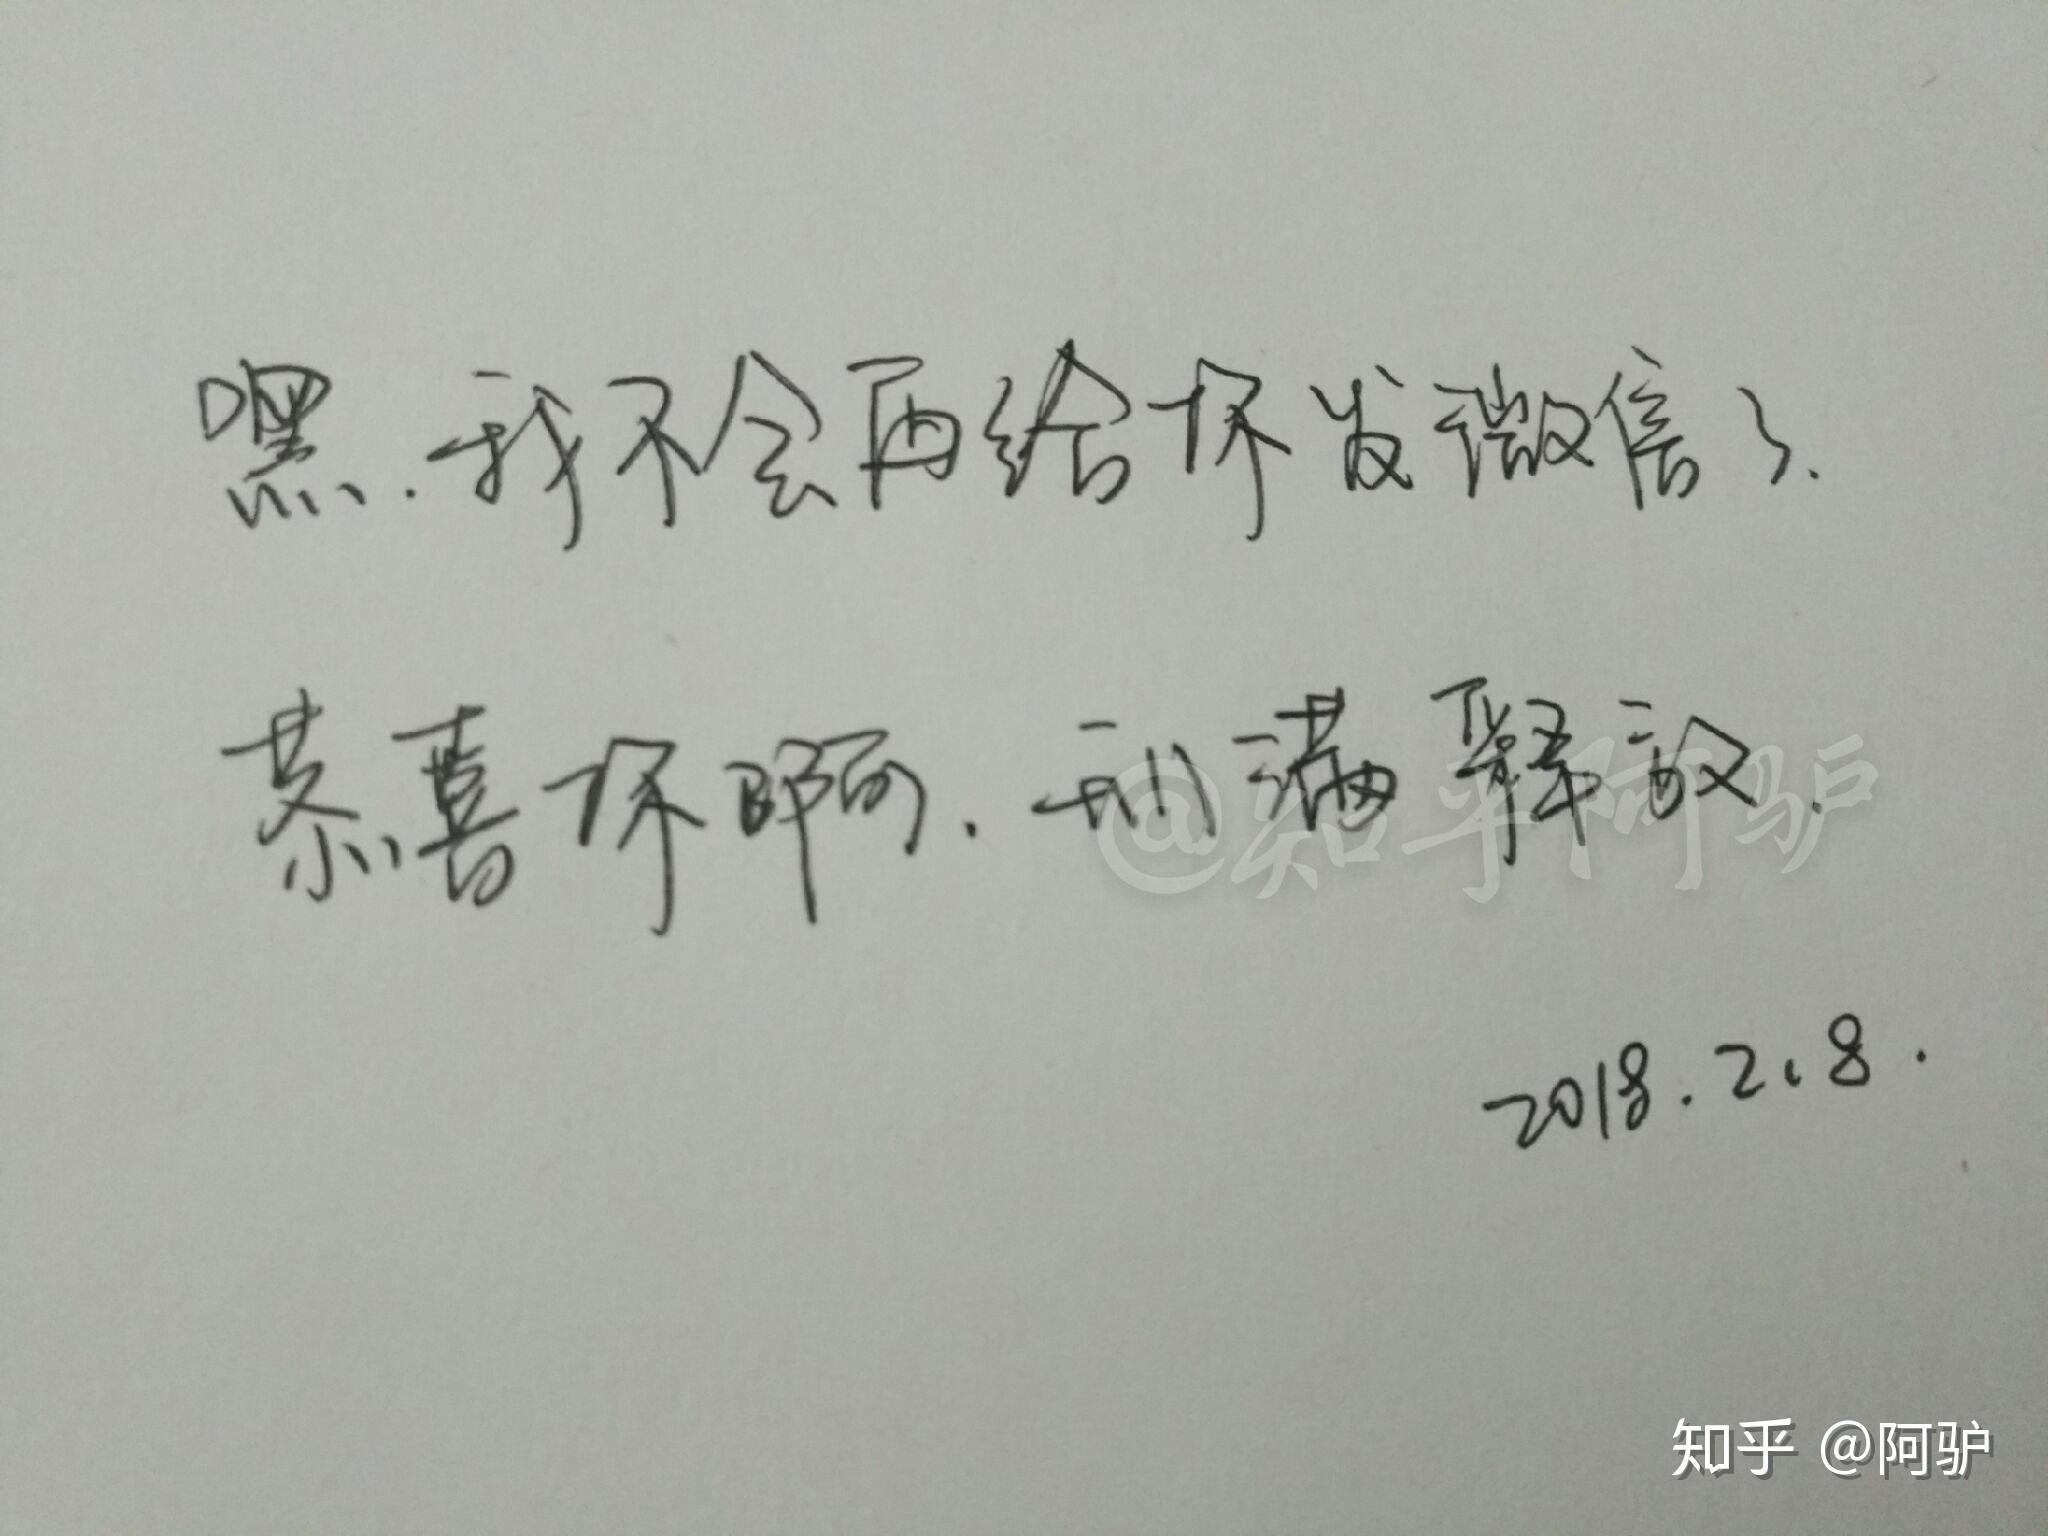 嘿.我不会再给你发微信了.
恭喜你啊.刑满释放.
@知乎阿驴
2018.2.8.
知乎 @阿驴